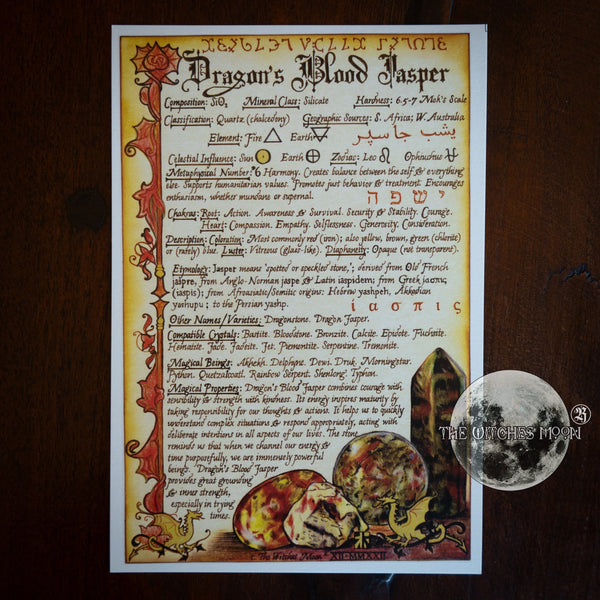 Dragon's Blood Jasper
Composition: SiO₂ Mineral Class: Silicate Hardness: 6.5-7 Moh's Scale
Classification: Quartz (chalcedony) Geographic Sources: S. Africa; W. Australia
Element: Fire 🜂 Earth 🜃 یشب جاسپر
Celestial Influence: Sun ☉ Earth ⊕ Zodiac: Leo ♌ Ophiuchus ⛎
Metaphysical Number: 6 Harmony. Creates balance between the self & everything
else. Supports humanitarian values. Promotes just behavior & treatment. Encourages
enthusiasm, whether mundane or supernal. ישפה
Chakras: Root: Action. Awareness & Survival. Security & Stability. Courage.
Heart: Compassion. Empathy. Selflessness. Generosity. Consideration.
Description: Coloration: Most commonly red (iron); also yellow, brown, green (chlorite)
or (rarely) blue. Luster: Vitreous (glass-like). Diaphaneity: Opaque (not transparent).
Etymology: Jasper means 'spotted or speckled stone,'; derived from Old French
jaspre, from Anglo-Norman jaspe & Latin iaspidem; from Greek
(iaspis); from Afroasiatic/Semitic origins: Hebrew yashpeh, Akkadian
yashupu; to the Persian yashp. ίασπις
Other Names/Varieties: Dragonstone. Dragon Jasper.
Compatible Crystals: Bastite. Bloodstone. Bronzite. Calcite. Epidote. Fuchsite.
Hematite. Jade. Jadeite. Jet. Piemontite. Serpentine. Tremolite.
Magical Beings: Akhekh. Delphyne. Dewi. Druk. Morningstar.
Python. Quetzalcoatl. Rainbow Serpent. Shenlong. Typhon.
Magical Properties: Dragon's Blood Jasper combines courage with
sensibility & strength with kindness. Its energy inspires maturity by
taking responsibility for our thoughts & actions. It helps us to quickly
understand complex situations & respond appropriately, acting with
deliberate intentions in all aspects of our lives. The stone
reminds us that when we channel our energy &
time purposefully, we are immensely powerful
beings. Dragon's Blood Jasper
provides great grounding
& inner strength,
especially in trying
times.
© The Witches' Moon ® XII-MMXXII
THE WITCHES MOON ®